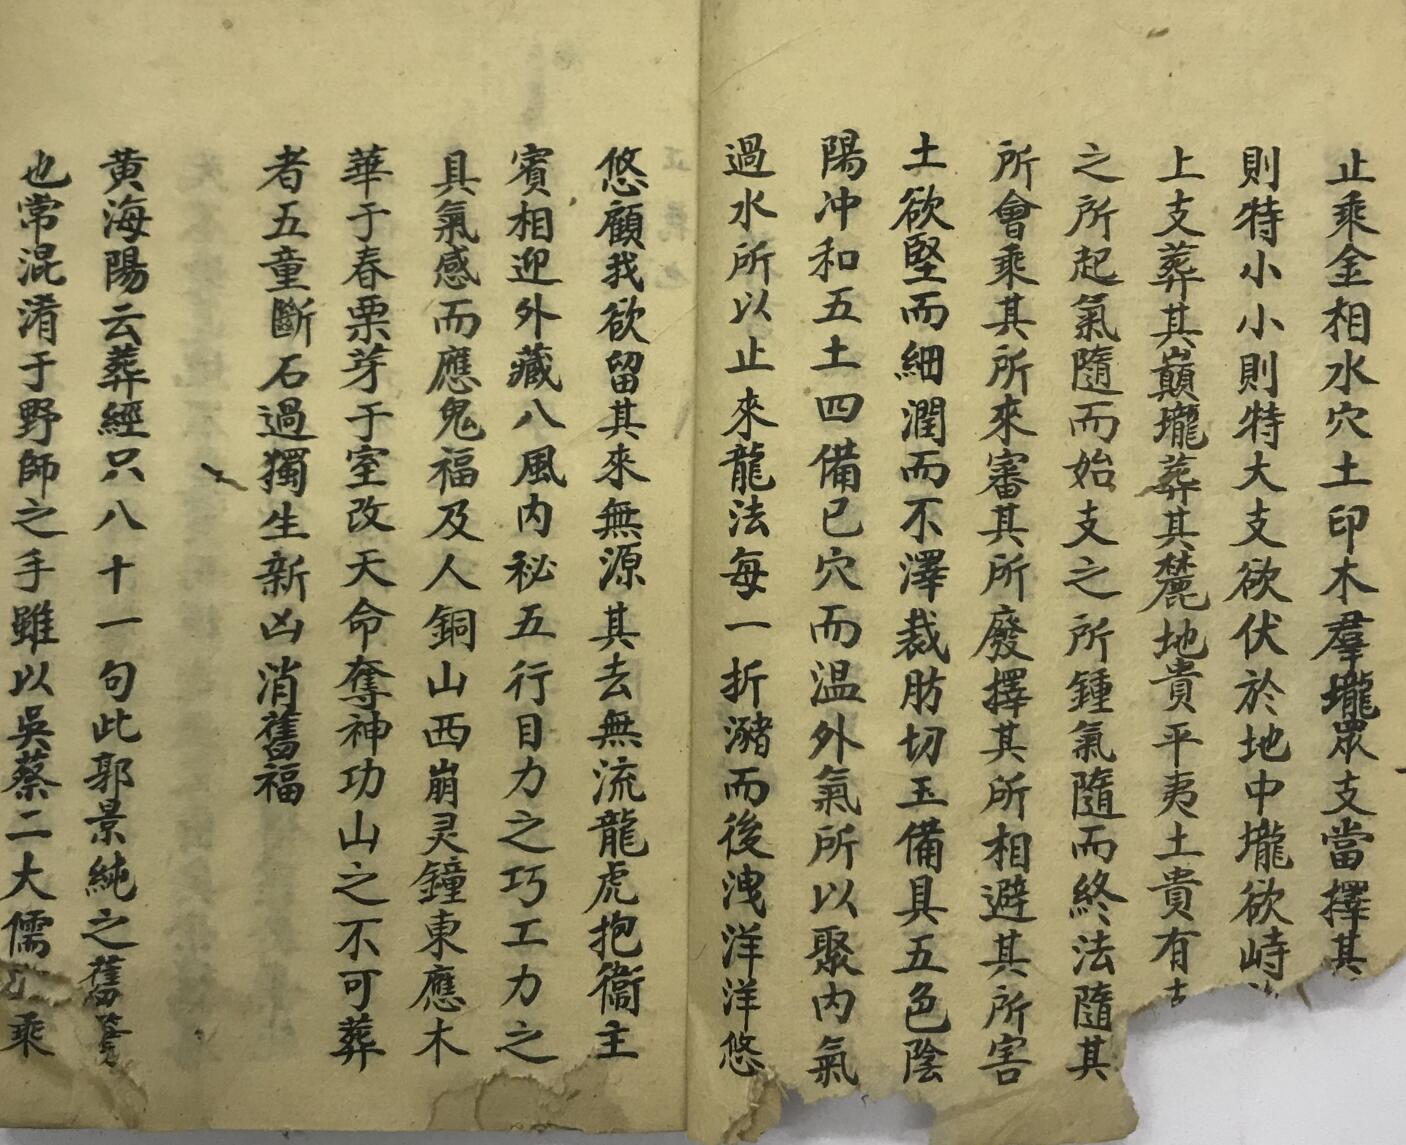 止乘金相水穴土印木羣壠眾支當擇其
則特小小則特大支欲伏於地中壠欲峙
上支葬其巔壠葬其麓地貴平夷土貴有
之所起氣隨而始支之所鍾氣隨而終法隨其
所會乘其所來審其所廢擇其所相避其所害
土欲堅而細潤而不澤裁肪切玉備具五色陰
陽冲和五土四備已穴而温外氣所以聚内氣
過水所以止來龍法每一折瀦而後洩洋洋悠
悠顧我欲留其來無源其去無流龍虎抱衞主
賓相迎外藏八風内秘五行目力之巧工力之
具氣感而應鬼福及人銅山西崩灵鐘東應木
華于春栗芽于室改天命奪神功山之不可葬
者五童斷石過獨生新凶消舊福
黄海陽云葬經只八十一句此郭景純之舊
也常混淆于野師之手雖以吳蔡二大儒乘